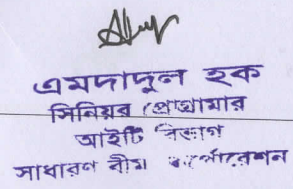 এমদাদুল হক
সিনিয়র প্রোগ্রামার
আইটি বিভাগ
সাধারণ বীমা কর্পোরেশন